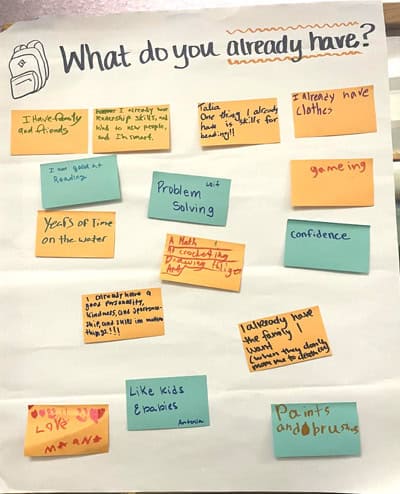 What do you already have?
I Have family
and friends
I already have
leadership skills, and
kind to new people,
and I'm smart.
Talia
One thing I already
have is skills for
beading!!
I Already have
clothes
I am good at
Reading
Problem
Solving
gameing
Years of time
on the water
A Math
At crocheting
Drawing
Art
Confidence
I already have a
good personality,
kindness, and sportsman-
ship, and skills in
things!!!
I already have
the family I
want
(when they don't
me to death)
LOVE
Like kids
& babies
Antonia
Paints
and brushes